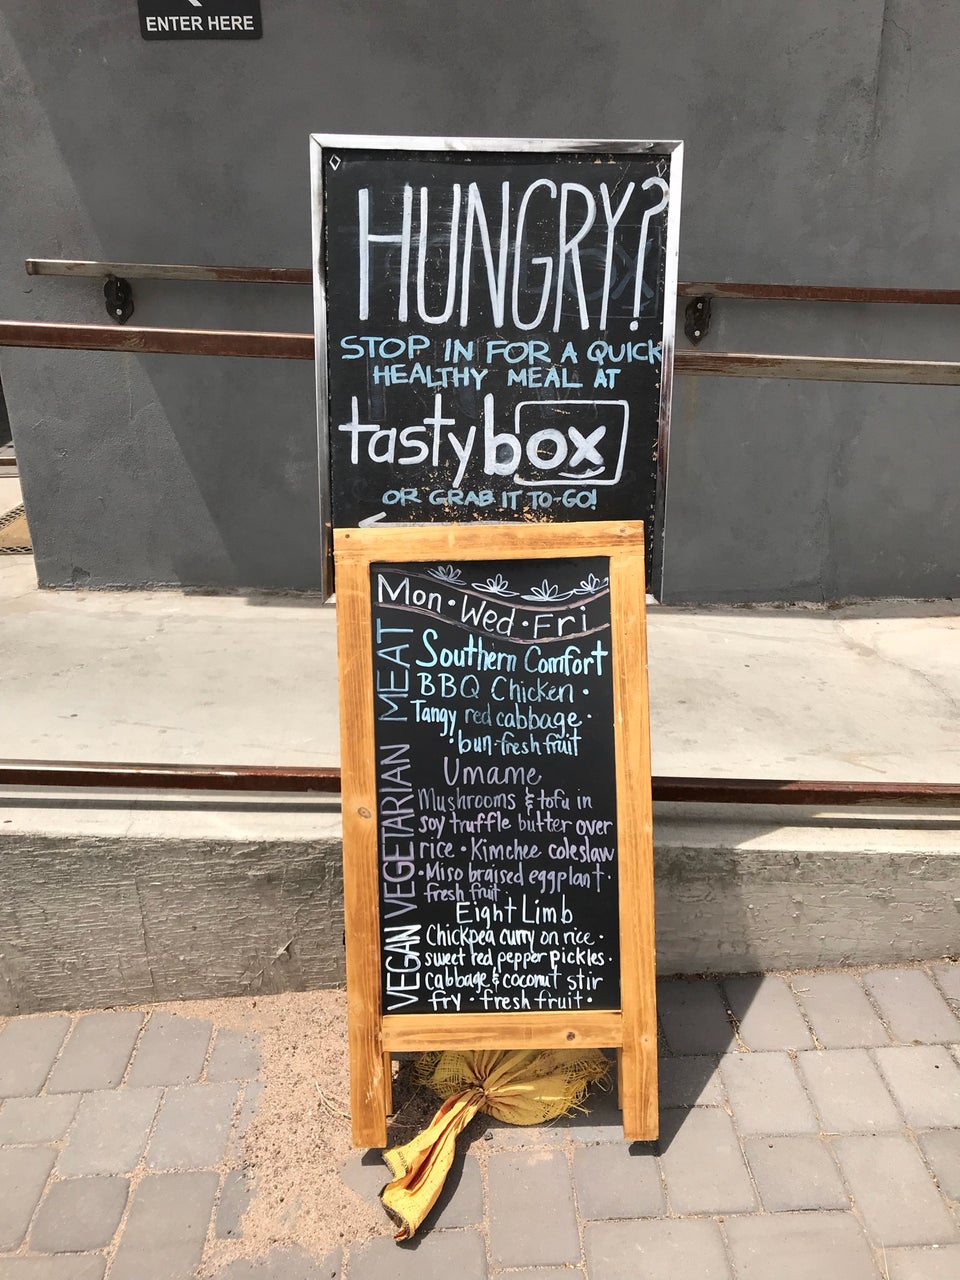 ENTER HERE
HUNGRY?
STOP IN FOR A QUICK
HEALTHY MEAL AT
tastybox
OR GRAB IT TO-GO!
Mon·Wed·Fri
MEAT
Southern Comfort
BBQ Chicken ·
Tangy red cabbage ·
· bun · fresh fruit
VEGETARIAN
Umame
Mushrooms & tofu in
soy truffle butter over
rice · Kimchee coleslaw
· Miso braised eggplant ·
fresh fruit
VEGAN
Eight Limb
Chickpea curry on rice ·
sweet red pepper pickles ·
Cabbage & coconut stir
fry · fresh fruit ·